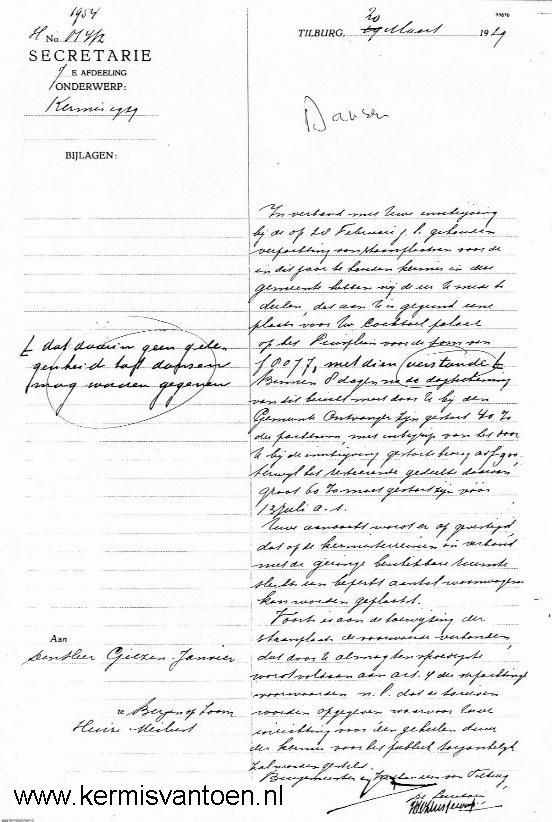 1954
N No. 0142
SECRETARIE
E AFDEELING
ONDERWERP:
Kermis 1929
BIJLAGEN:
99676
20
TILBURG, Maart 1929
Dansen
In verband met Uwe inschrijving
bij de op Februari j.l. gehouden
verpachting van staanplaatsen voor de
in dit jaar te houden kermis in deze
gemeente hebben wij de eer U mede te
deelen, dat aan U is gegund eene
plaats voor Uw Cocktail palace
op het Piusplein voor de som van
f 8077, met dien verstande
dat daarin geen gele-
genheid tot dansen
mag worden gegeven
Binnen 8 dagen na de dagteekening
van dit bericht moet door U bij den
Gemeente Ontvanger zijn gestort 40 %
der pachtsom met inbegrip van het door
U bij de inschrijving gestorte
terwijl het resteerende gedeelte daarvan,
groot 60 % moet gestort zijn vóór
13 Juli a.s.
Uwe aandacht wordt er op gevestigd,
dat op de kermisterreinen in verband
met de geringe beschikbare ruimte
slechts een beperkt aantal woonwagens
kan worden geplaatst.
Voorts is aan de toewijzing der
staanplaats de voorwaarde verbonden,
dat door U
wordt voldaan aan art. 4 der verpachtings
voorwaarden n.l. dat de tarieven
worden opgegeven waarvoor Uwe
inrichting voor den geheelen duur
der kermis voor het publiek toegankelijk
zal worden gesteld.
Burgemeester en Wethouders van Tilburg,
Aan
den Heer Janvier
te Bergen op Zoom
Huize
www.kermisvantoen.nl